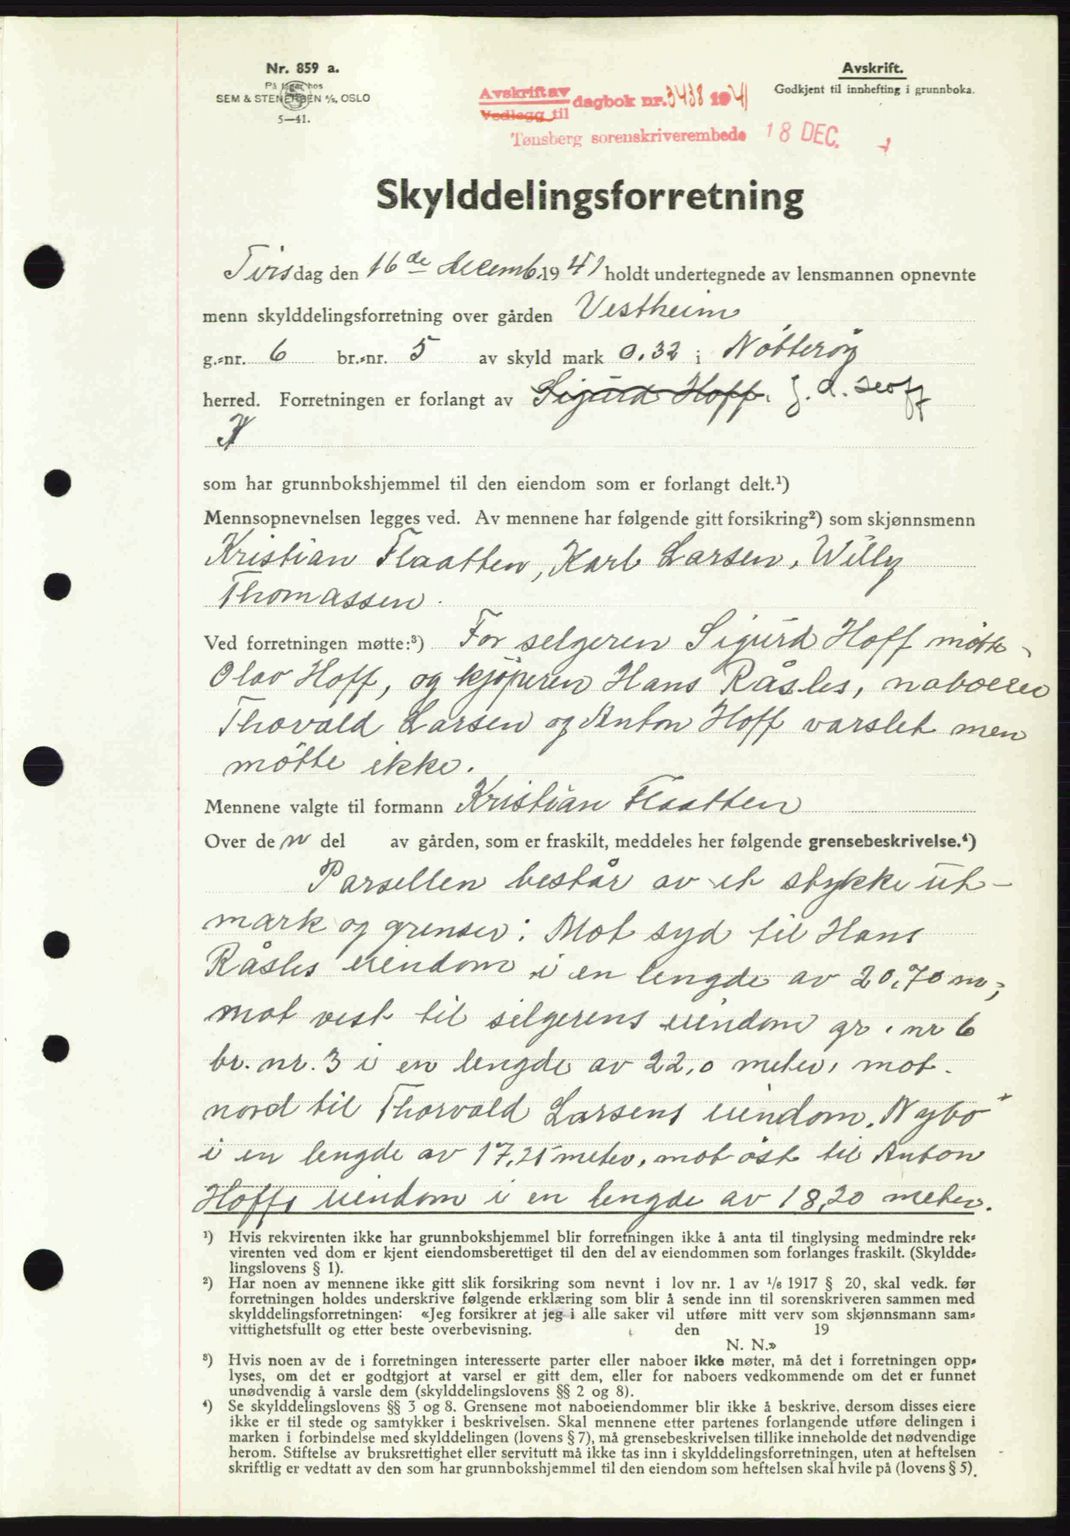 Nr. 859 a.
På lager hos
SEM & STENERSEN A/S, OSLO
5—41.
Avskrift av
Vedlegg til
dagbok nr. 3438 1941
Tønsberg sorenskriverembede
18 DEC.
Avskrift.
Godkjent til innhefting i grunnboka.
Skylddelingsforretning
Tirsdag den 16de decemb. 1941 holdt undertegnede av lensmannen opnevnte
menn skylddelingsforretning over gården Vestheim
g.-nr. 6 br.-nr. 5 av skyld mark 0.32 i Nøtterøy
herred. Forretningen er forlangt av Sigurd Hoff.
som har grunnbokshjemmel til den eiendom som er forlangt delt.¹)
Mennsopnevnelsen legges ved. Av mennene har følgende gitt forsikring²) som skjønnsmenn
Kristian Flaatten, Karl Larsen, Willy
Thomassen.
Ved forretningen møtte:³) For selgeren Sigurd Hoff møtte
Olav Hoff, og kjøperen Hans Råsles, naboerer
Thovald Larsen og Anton Hoff varslet men
møtte ikke.
Mennene valgte til formann Kristian Flaatten
Over den del av gården, som er fraskilt, meddeles her følgende grensebeskrivelse.⁴)
Parsellen består av et stykke ut-
mark og grenser: Mot syd til Hans
Råsles eiendom i en lengde av 20,70 m;
mot vest til selgerens eiendom gr. nr 6
br. nr. 3 i en lengde av 22,0 meter, mot
nord til Thorvald Larsens eiendom. Nybo"
i en lengde av 17,25 meter, mot øst til Anton
Hoffs eiendom i en lengde av 18,20 meter.
¹) Hvis rekvirenten ikke har grunnbokshjemmel blir forretningen ikke å anta til tinglysing medmindre rek-
virenten ved dom er kjent eiendomsberettiget til den del av eiendommen som forlanges fraskilt. (Skyldde-
lingslovens § 1).
²) Har noen av mennene ikke gitt slik forsikring som nevnt i lov nr. 1 av 1/6 1917 § 20, skal vedk. før
forretningen holdes underskrive følgende erklæring som blir å sende inn til sorenskriveren sammen med
skylddelingsforretningen: «Jeg forsikrer at jeg i alle saker vil utføre mitt verv som skjønnsmann sam-
vittighetsfullt og etter beste overbevisning. den 19
N. N.»
³) Hvis noen av de i forretningen interesserte parter eller naboer ikke møter, må det i forretningen opp-
lyses, om det er godtgjort at varsel er gitt dem, eller for naboers vedkommende om det er funnet
unødvendig å varsle dem (skylddelingslovens §§ 2 og 8).
⁴) Se skylddelingslovens §§ 3 og 8. Grensene mot naboeiendommer blir ikke å beskrive, dersom disses eiere
ikke er til stede og samtykker i beskrivelsen. Skal mennene etter partenes forlangende utføre delingen i
marken i forbindelse med skylddelingen (lovens § 7), må grensebeskrivelsen tillike inneholde det nødvendige
herom. Stiftelse av bruksrettighet eller servitutt må ikke tas inn i skylddelingsforretningen, uten at heftelsen
skriftlig er vedtatt av den som har grunnbokshjemmel til den eiendom som heftelsen skal hvile på (lovens § 5).